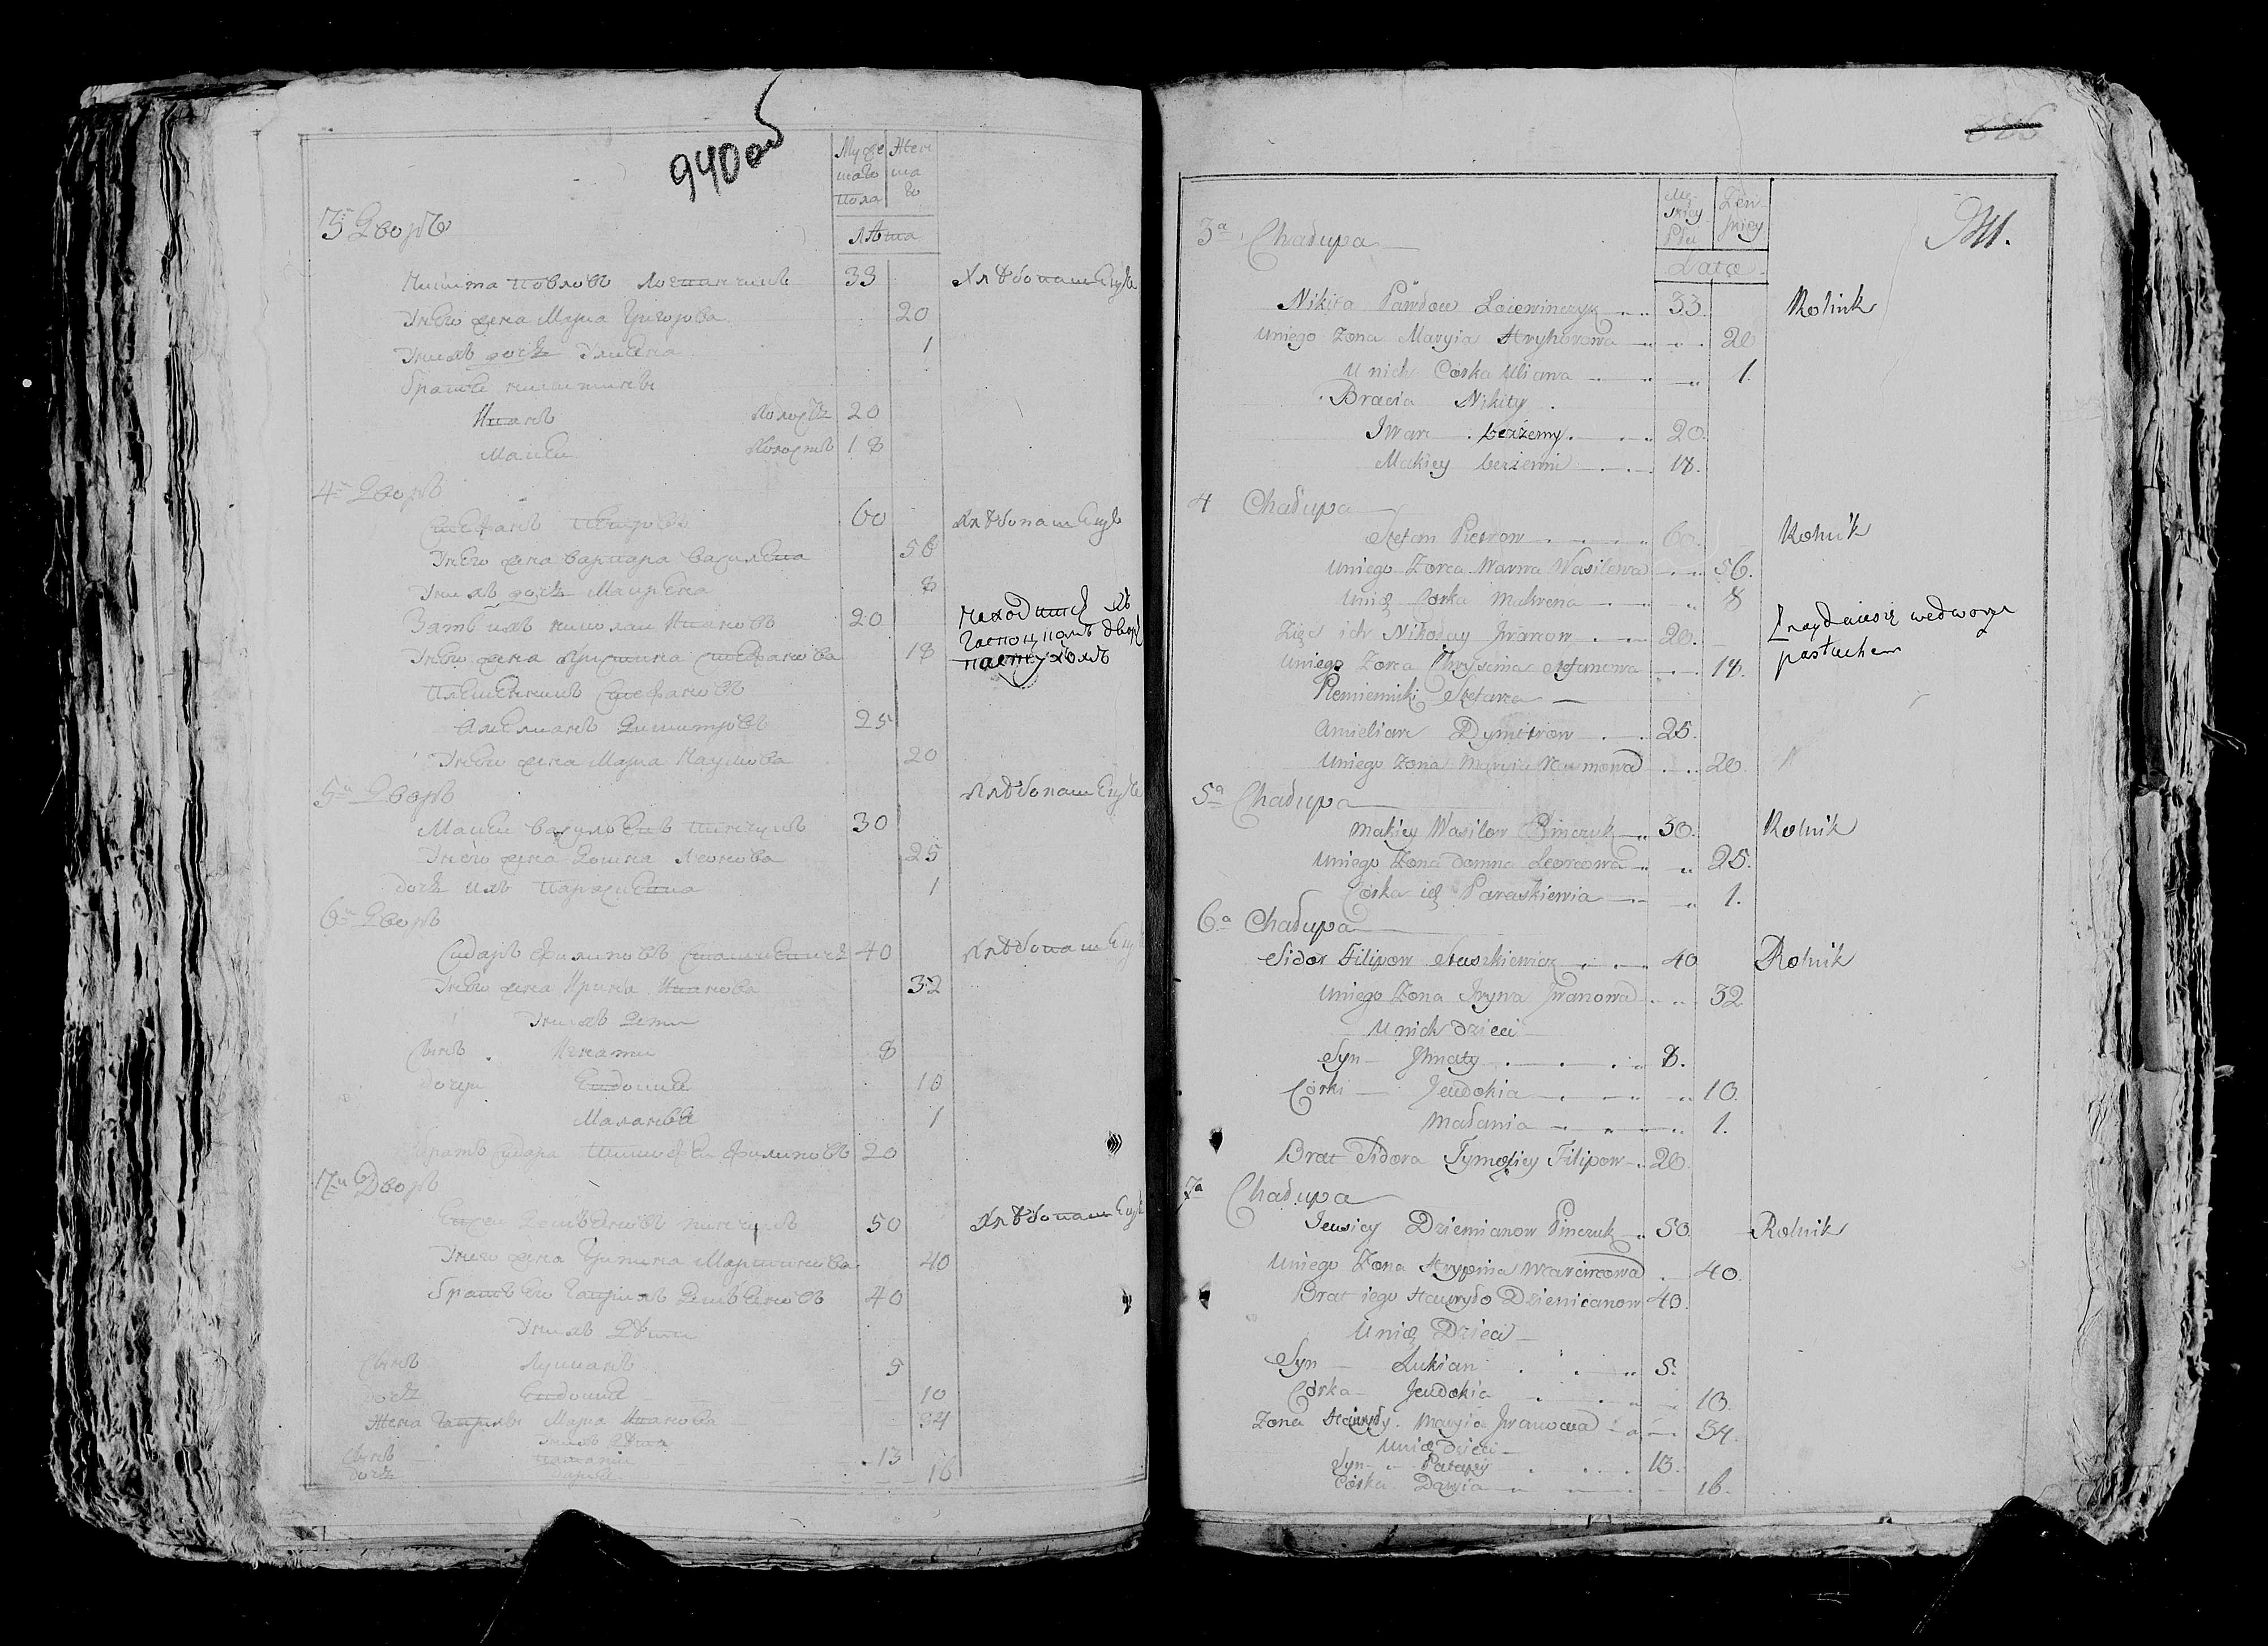 940 об
Муже Жен
скаго ска
пола го
3й Дворъ
лѣта
Никита Павловъ Логвинчикъ 33 Хлѣбопашецъ
Унего жена Мариа Григорова 20
Унихъ дочь Улиана 1
братъя никитины
Иванъ холостъ 20
Макеи холостъ 18
4й Дворъ
Стефанъ Петровъ 60 Хлѣбопашецъ
Унего жена варвара василева 56
Унихъ дочь Маврена 8
Зять ихъ николаи Ивановъ 20 находится въ
господскомъ дворѣ
Унего жена Христина Стефанова 18 пастухомъ
Племенникъ Стефановъ
Амелианъ Димитровъ 25
Унего жена Мариа Наумова 20
5й Дворъ Хлѣбопашецъ
Макеи василевъ пинчукъ 30
Унего жена Домна Леонова 25
дочь ихъ Параскевиа 1
6й Дворъ
Сидаръ Филиповъ Сташкевичъ 40 Хлѣбопашецъ
Унего жена Ирина Иванова 32
Унихъ дети
Сынъ Игнати 8
дочери Евдокиа 10
Маланья 1
братъ Сидара Тимофеи Филиповъ 20
7й Дворъ
Евсеи Демьяновъ пинчукъ 50 Хлѣбопашецъ
Унего жена Грипина Мартинова 40
братъ Его Гаврилъ Демьяновъ 40
Унихъ Дѣти
Сынъ Лукианъ 5
дочь Евдокиа 10
Жена Гаврилы Мариа Иванова 34
Унихъ дѣти
Сынъ Патапии 13
дочь дариа 16
Mę- Żeń-
skiey skiey
Płci
941.
3a Chałupa
Lata
Nikita Pawłow Łoiewinczyk 33. Rolnik
Uniego żona Maryia Hryhorowa 20
U nich Córka Uliana 1.
Bracia Nikity
Iwan bezżenny 20.
Makiey bezżenny 18.
4 Chałupa
Stefan Pietrow 60. Rolnik
Uniego żona Warwa Wasilewa 56.
Unich Córka Makrena 8
Zięć ich Nikołay Iwanow 20. Znayduiesię wedworze
Uniego żona Chrystina Stefanowa 18. pastuchem
Plemienniki Stefana
Amielian Dymitrow 25.
Uniego żona Maryia Naumowa 20.
5a Chałupa
Makiey Wasilow Pinczuk 30. Rolnik
Uniego żona Domna Leonowa 25.
Córka ich Paraskiewia 1.
6a Chałupa
Sidor Filipow Staszkiewicz 40 Rolnik
Uniego żona Iryna Iwanowa 32
U nich dzieci
Syn Ihnaty 8.
Córki Jeudokia 10.
Małania 1.
Brat Sidora Tymofiey Filipow 20.
7a Chałupa
Jewsiey Dziemianow Pinczuk 50. Rolnik
Uniego żona Hrypina Marcinowa 40.
Brat iego Hawryło Dziemianow 40.
Unich Dzieci
Syn Łukian 5.
Córka Jeudokia 10.
Żona Hawryły Maryia Iwanowa 34.
Unich dzieci
Syn Patapiy 13.
Córka Darya 16.